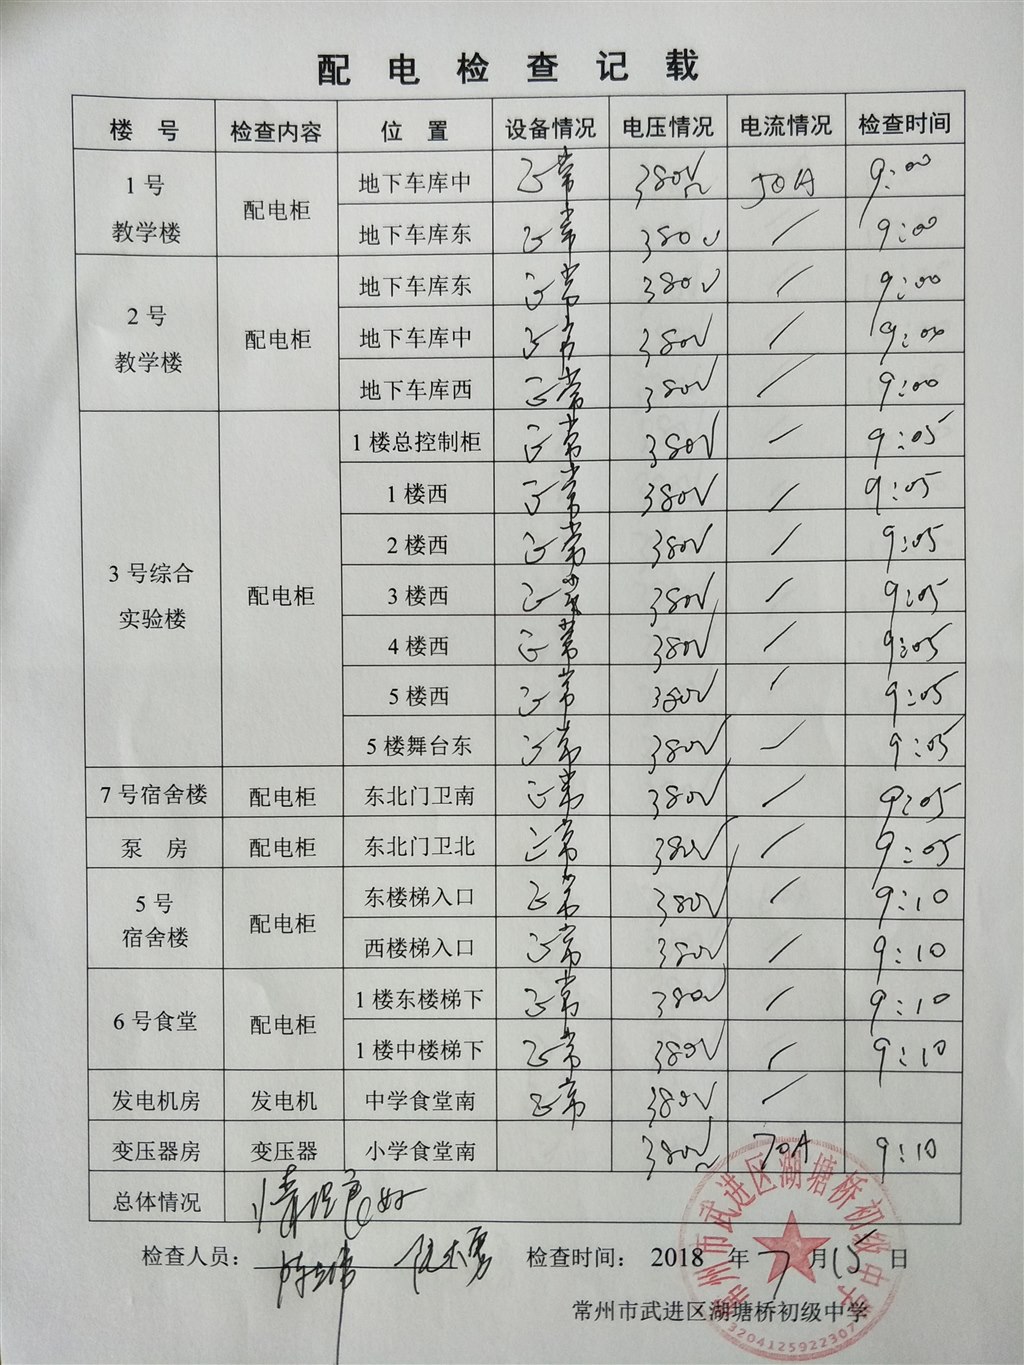 配电检查记载
楼号 检查内容 位置 设备情况 电压情况 电流情况 检查时间
1号教学楼 配电柜 地下车库中 正常 380V 50A 9:00
地下车库东 正常 380V / 9:00
2号教学楼 配电柜 地下车库东 正常 380V / 9:00
地下车库中 正常 380V / 9:00
地下车库西 正常 380V / 9:00
3号综合实验楼 配电柜 1楼总控制柜 正常 380V / 9:05
1楼西 正常 380V / 9:05
2楼西 正常 380V / 9:05
3楼西 正常 380V / 9:05
4楼西 正常 380V / 9:05
5楼西 正常 380V / 9:05
5楼舞台东 正常 380V / 9:05
7号宿舍楼 配电柜 东北门卫南 正常 380V / 9:05
泵房 配电柜 东北门卫北 正常 380V / 9:05
5号宿舍楼 配电柜 东楼梯入口 正常 380V / 9:10
西楼梯入口 正常 380V / 9:10
6号食堂 配电柜 1楼东楼梯下 正常 380V / 9:10
1楼中楼梯下 正常 380V / 9:10
发电机房 发电机 中学食堂南 正常 380V /
变压器房 变压器 小学食堂南 380V 70A 9:10
总体情况 情况良好
检查人员: 检查时间: 2018年7月15日
常州市武进区湖塘桥初级中学
常州市武进区湖塘桥初级中学